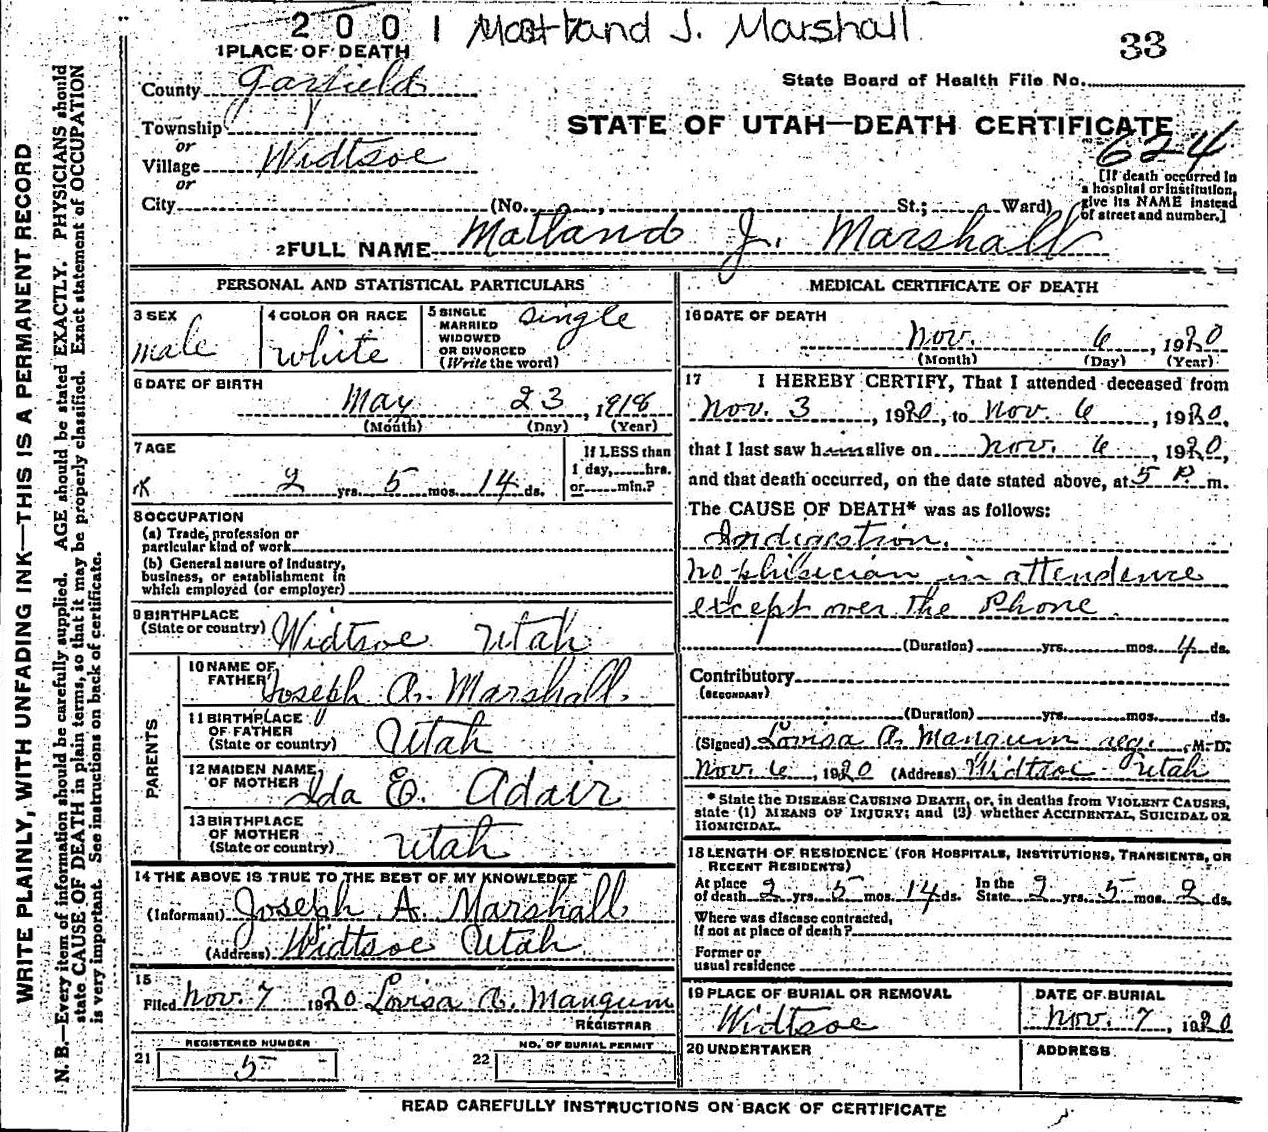 2001 Maitland J. Marshall
33
1 PLACE OF DEATH
County Garfield
State Board of Health File No.
Township
or
Village Widtsoe
or
City (No. , St.; Ward)
STATE OF UTAH—DEATH CERTIFICATE
624
[If death occurred in
a hospital or institution,
give its NAME instead
of street and number.]
2 FULL NAME Matland J. Marshall
PERSONAL AND STATISTICAL PARTICULARS
3 SEX
male
4 COLOR OR RACE
white
5 SINGLE
MARRIED
WIDOWED
OR DIVORCED
(Write the word)
single
6 DATE OF BIRTH
May 23, 1918
(Month) (Day) (Year)
7 AGE
2 yrs. 5 mos. 14 ds.
If LESS than
1 day, hrs.
or min.?
8 OCCUPATION
(a) Trade, profession or
particular kind of work
(b) General nature of industry,
business, or establishment in
which employed (or employer)
9 BIRTHPLACE
(State or country) Widtsoe Utah
PARENTS
10 NAME OF
FATHER Joseph A. Marshall
11 BIRTHPLACE
OF FATHER
(State or country) Utah
12 MAIDEN NAME
OF MOTHER Ida E. Adair
13 BIRTHPLACE
OF MOTHER
(State or country) Utah
14 THE ABOVE IS TRUE TO THE BEST OF MY KNOWLEDGE
(Informant) Joseph A. Marshall
(Address) Widtsoe Utah
15
Filed Nov. 7 1920 Lovisa A. Mangum
REGISTRAR
REGISTERED NUMBER
21 5
NO. OF BURIAL PERMIT
22
MEDICAL CERTIFICATE OF DEATH
16 DATE OF DEATH
Nov. 6, 1920
(Month) (Day) (Year)
17 I HEREBY CERTIFY, That I attended deceased from
Nov. 3, 1920, to Nov 6, 1920,
that I last saw him alive on Nov. 6, 1920,
and that death occurred, on the date stated above, at 5 P. m.
The CAUSE OF DEATH* was as follows:
Indigestion.
no phisician in attendence
except over the Phone.
(Duration) yrs. mos. 4 ds.
Contributory
(SECONDARY)
(Duration) yrs. mos. ds.
(Signed) Lovisa A. Mangum reg. M. D.
Nov. 6, 1920 (Address) Widtsoe Utah
* State the DISEASE CAUSING DEATH, or, in deaths from VIOLENT CAUSES,
state (1) MEANS OF INJURY; and (2) whether ACCIDENTAL, SUICIDAL OR
HOMICIDAL.
18 LENGTH OF RESIDENCE (FOR HOSPITALS, INSTITUTIONS, TRANSIENTS, OR
RECENT RESIDENTS)
At place In the
of death 2 yrs. 5 mos. 14 ds. State 2 yrs. 5 mos. 2 ds.
Where was disease contracted,
If not at place of death?
Former or
usual residence
19 PLACE OF BURIAL OR REMOVAL
Widtsoe
DATE OF BURIAL
Nov. 7, 1920
20 UNDERTAKER
ADDRESS
READ CAREFULLY INSTRUCTIONS ON BACK OF CERTIFICATE
WRITE PLAINLY, WITH UNFADING INK—THIS IS A PERMANENT RECORD
N. B.—Every item of information should be carefully supplied. AGE should be stated EXACTLY. PHYSICIANS should
state CAUSE OF DEATH in plain terms, so that it may be properly classified. Exact statement of OCCUPATION
is very important. See instructions on back of certificate.